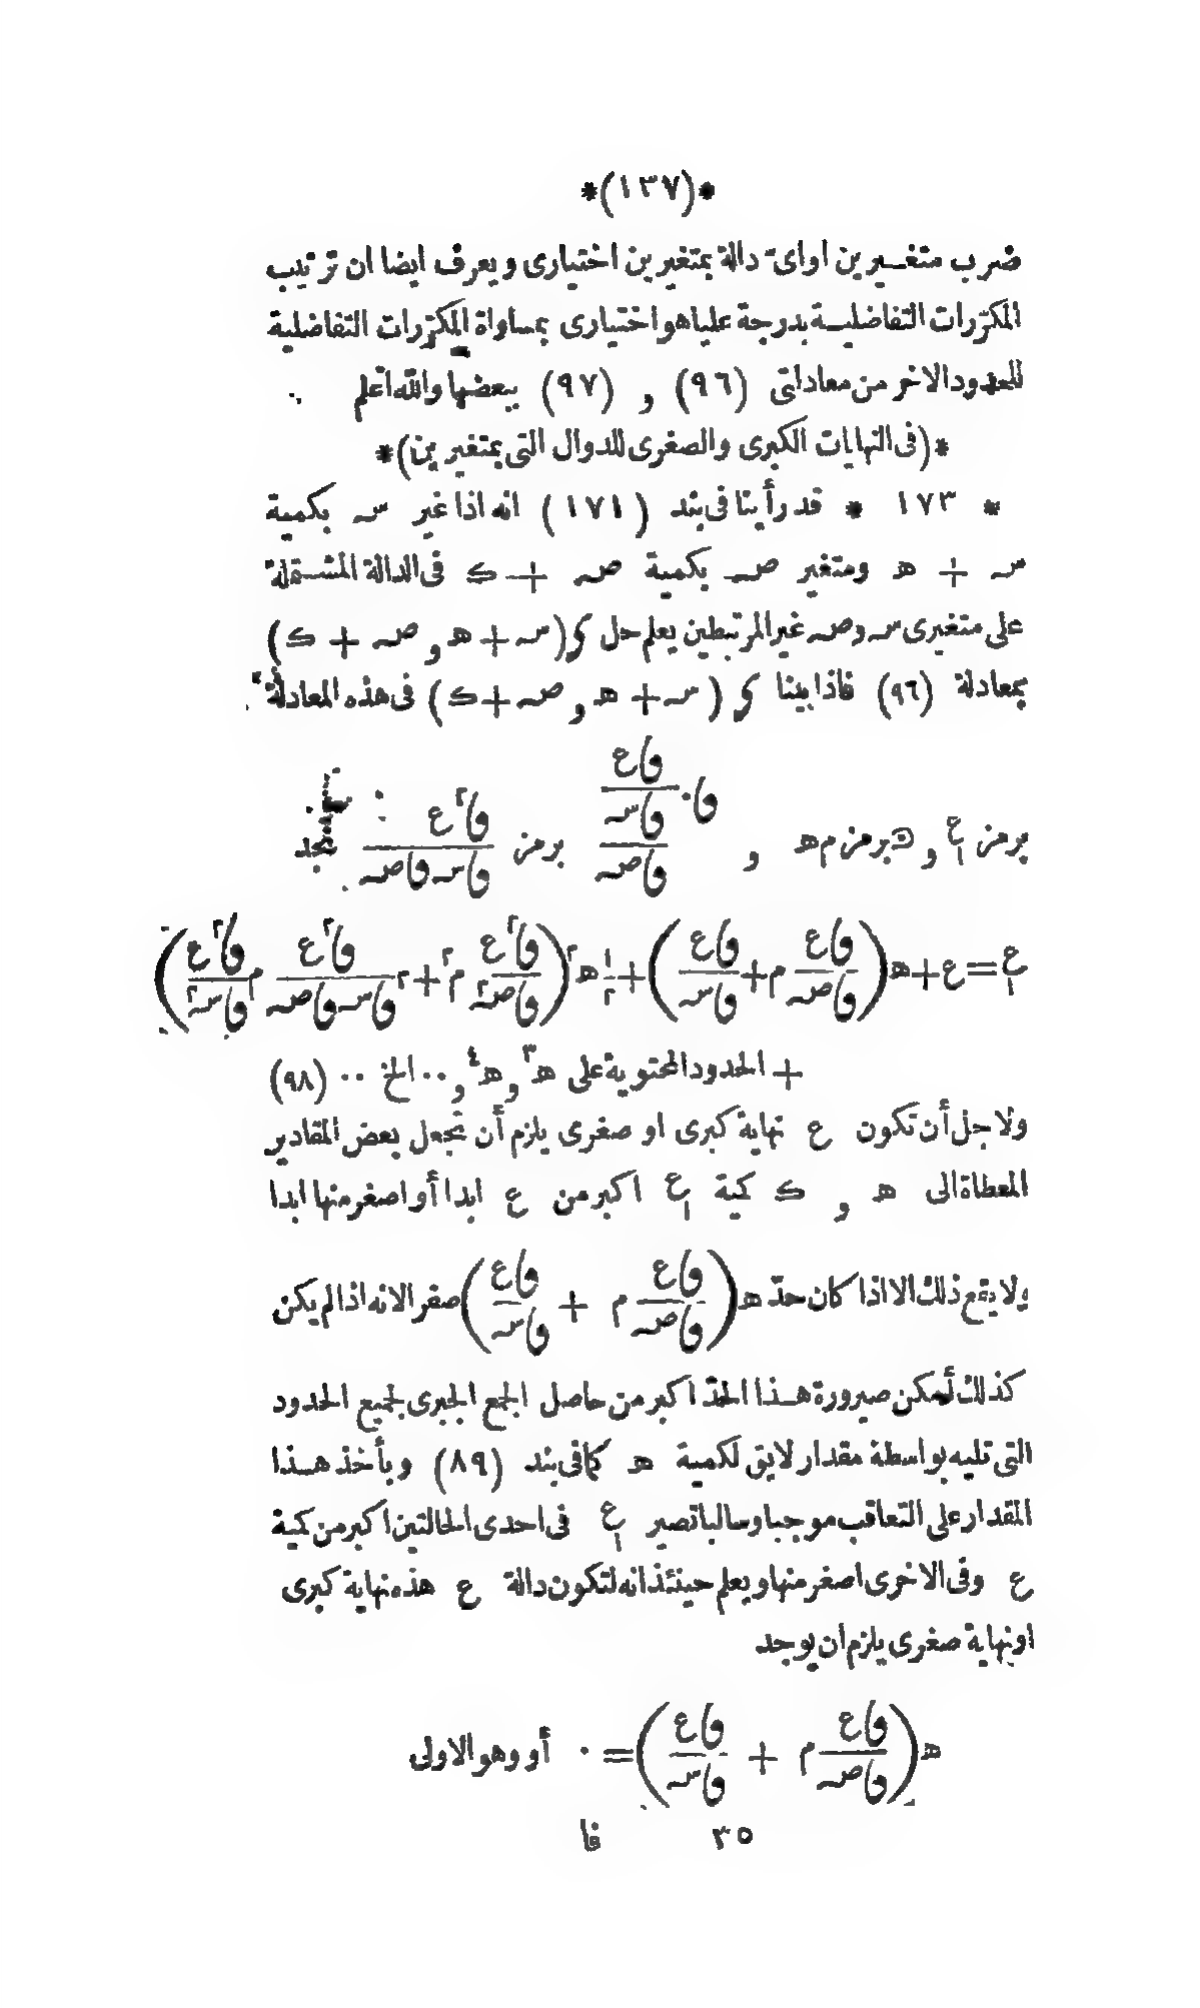 *(١٣٧)*
ضرب متغيرين او اىّ دالة بمتغيرين اختيارى ويعرف ايضا ان ترتيب
المكرّرات التفاضلية بدرجة علياهو اختيارى بمساواة المكرّرات التفاضلية
للحدود الاخر من معادلتى (٩٦) و (٩٧) ببعضها والله اعلم
*(فى النهايات الكبرى والصغرى للدوال التى بمتغيرين)*
* ١٧٣ * قد رأينا فى بند (١٧١) انه اذا غير سـ بكمية
سـ + هـ ومتغير صـ بكمية صـ + ك فى الدالة المشتملة
على متغيرى سـ وصـ غير المرتبطين يعلم حل كر(سـ + هـ و صـ + ك)
بمعادلة (٩٦) فاذا بينا كر (سـ + هـ و صـ + ك) فى هذه المعادلة
برمز ع١ و ك برمز م هـ و ق.(قاع/قاسـ)/قاصـ برمز قا٢ع/قاسـ قاصـ نجد
ع١ = ع + هـ(قاع/قاصـ م + قاع/قاسـ) + ١/٢ هـ٢(قا٢ع/قاصـ٢ م٢ + ٢ قا٢ع/قاسـ قاصـ م قا٢ع/قاسـ٢)
+ الحدود المحتوية على هـ٣ و هـ٤ و ٠٠ الخ ٠٠ (٩٨)
ولاجل أن تكون ع نهاية كبرى او صغرى يلزم أن تجعل بعض المقادير
المعطاة الى هـ و ك كمية ع١ اكبر من ع ابدا أو اصغر منها ابدا
ولا يقع ذلك الا اذا كان حدّ هـ(قاع/قاصـ م + قاع/قاسـ) صفر الانه اذا لم يكن
كذلك لأمكن صيرورة هذا الحدّ اكبر من حاصل الجمع الجبرى لجميع الحدود
التى تليه بواسطة مقدار لايق لكمية هـ كما فى بند (٨٩) وبأخذ هذا
المقدار على التعاقب موجبا وسالبا تصير ع١ فى احدى الحالتين اكبر من كمية
ع وفى الاخرى اصغر منها ويعلم حينئذ انه لتكون دالة ع هذه نهاية كبرى
او نهاية صغرى يلزم ان يوجد
هـ(قاع/قاصـ م + قاع/قاسـ) = ٠ أو وهو الاولى
٣٥ فا